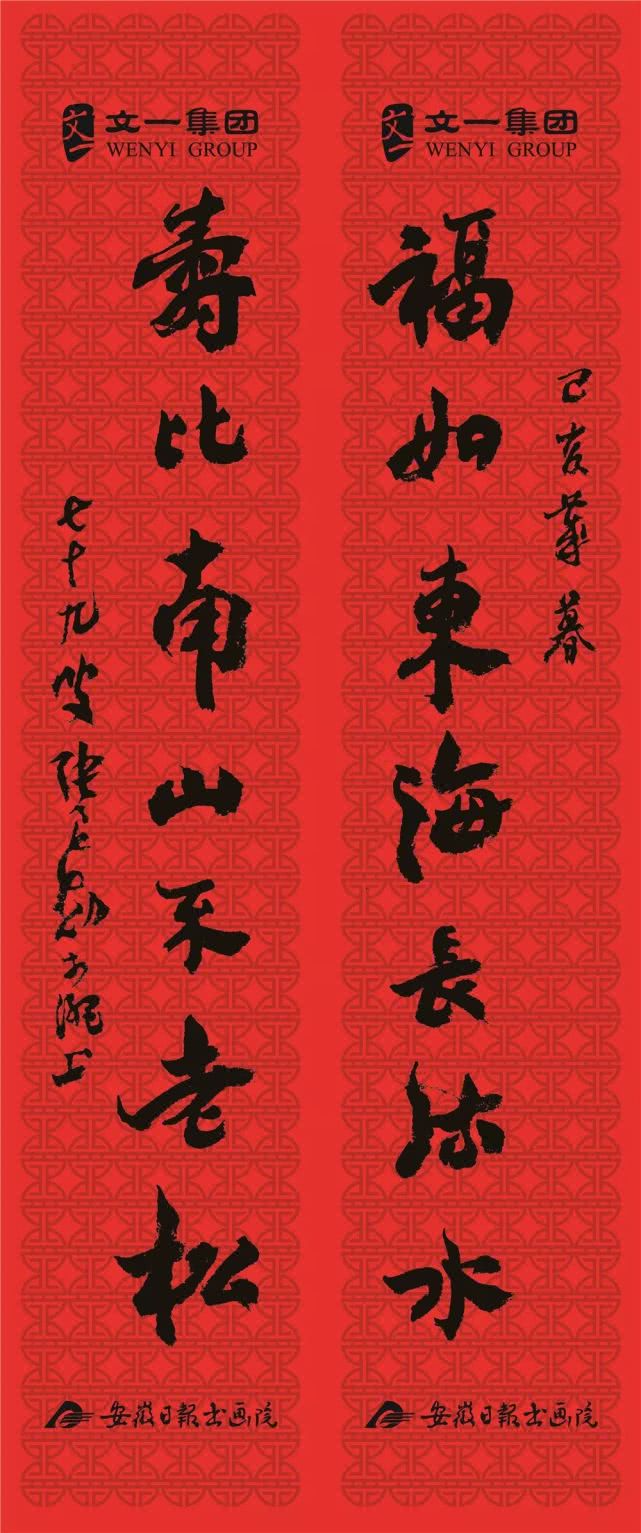 文一 文一集团
WENYI GROUP
福如東海長流水
己亥歲暮
安徽日報书画院
文一 文一集团
WENYI GROUP
壽比南山不老松
七十九叟
安徽日報书画院